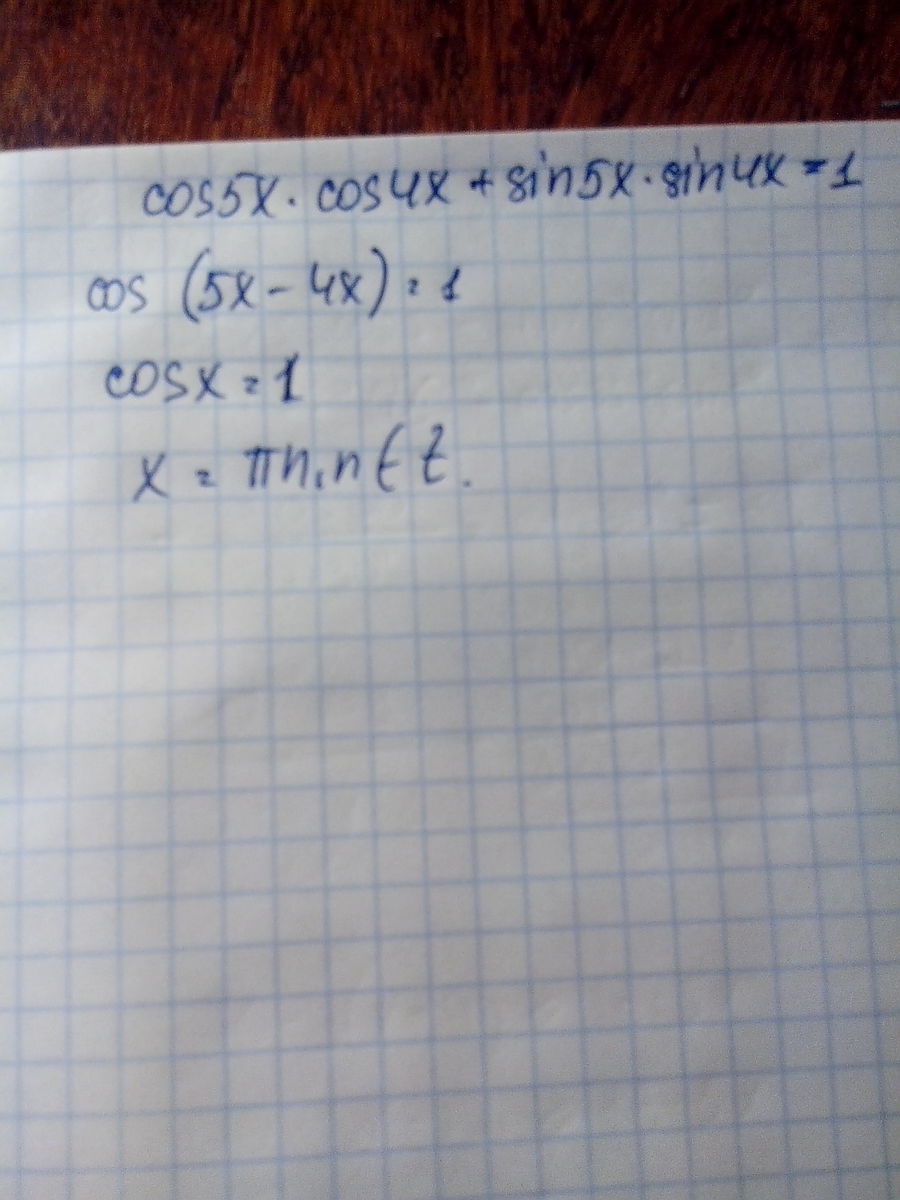 cos5x · cos4x + sin5x · sin4x = 1
cos (5x - 4x) = 1
cosx = 1
x = πn, n ∈ Z.